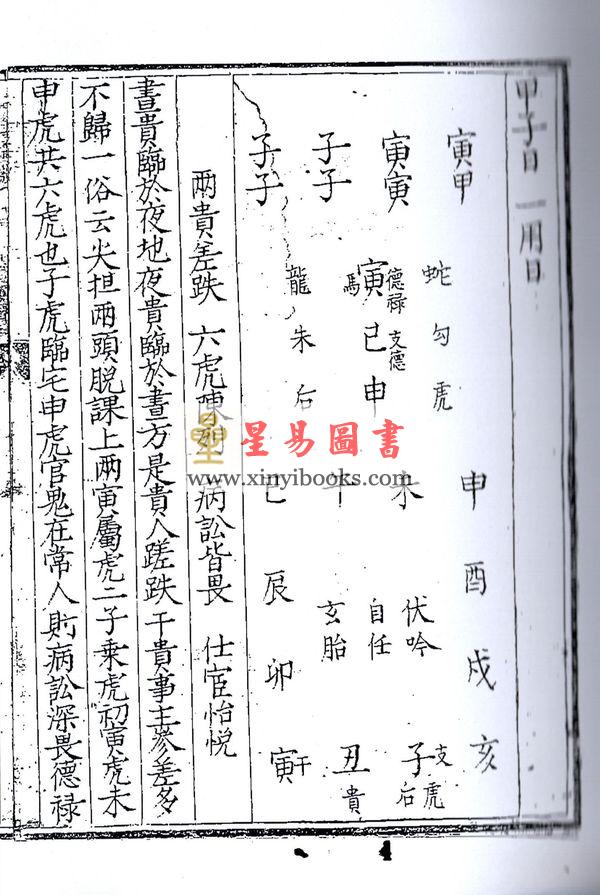 甲子日 一用日
寅甲
蛇勾虎
申酉戌亥
寅寅
德禄 支德
寅巳申
馬
未
伏吟
自任
子支虎后
子子
午
玄胎
丑貴
子子
龍朱后
巳
辰
卯
寅干
兩貴差跌 六虎陳列 病訟皆畏 仕宦怡悅
晝貴臨於夜地夜貴臨於晝方是貴人蹉跌干貴事主參差多
不歸一俗云尖担兩頭脱課上兩寅屬虎二子乘虎初寅虎未
申虎共六虎也子虎臨宅申虎官鬼在常人則病訟深畏德禄
星易圖書
www.xinyibooks.com
4